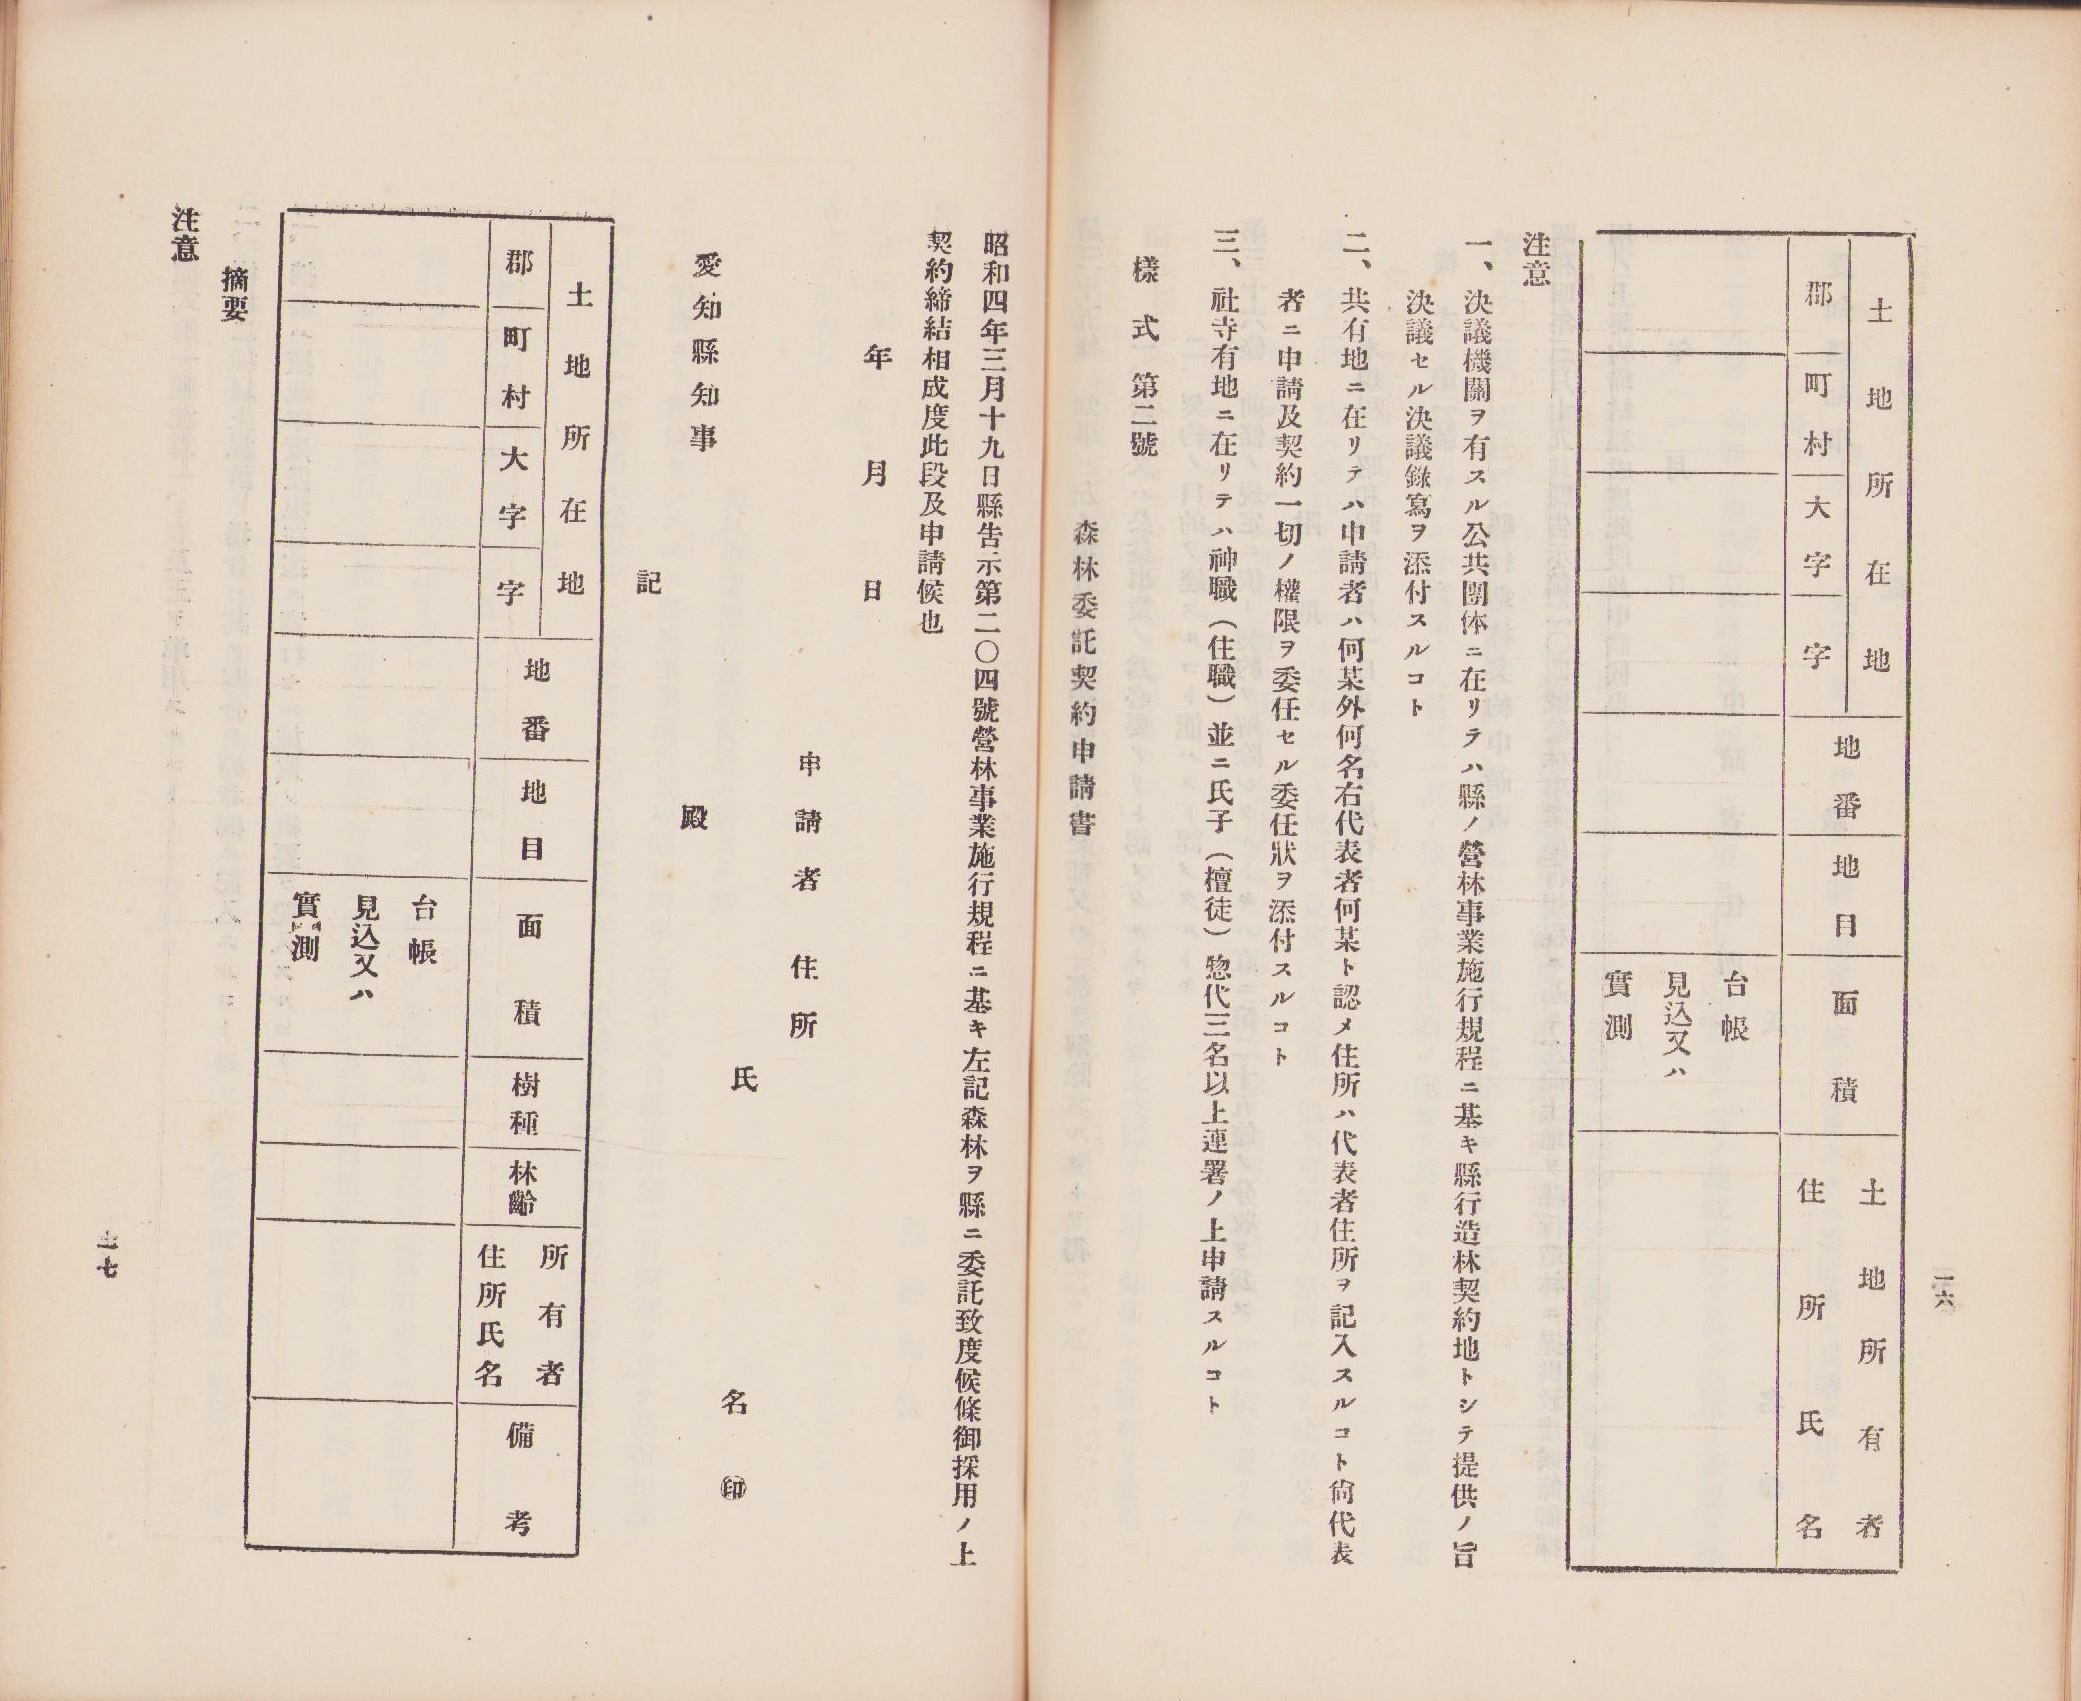 一六
土地所在地
郡
町村
大字
字
地番
地目
面積
土地所有者
住所氏名
台帳
見込又ハ
實測
注意
一、決議機關ヲ有スル公共團体ニ在リテハ縣ノ營林事業施行規程ニ基キ縣行造林契約地トシテ提供ノ旨
決議セル決議錄寫ヲ添付スルコト
二、共有地ニ在リテハ申請者ハ何某外何名右代表者何某ト認メ住所ハ代表者住所ヲ記入スルコト尙代表
者ニ申請及契約一切ノ權限ヲ委任セル委任狀ヲ添付スルコト
三、社寺有地ニ在リテハ神職（住職）並ニ氏子（檀徒）惣代三名以上連署ノ上申請スルコト
樣式第二號
森林委託契約申請書
昭和四年三月十九日縣吿示第二〇四號營林事業施行規程ニ基キ左記森林ヲ縣ニ委託致度候條御採用ノ上
契約締結相成度此段及申請候也
年月日
申請者住所
氏名㊞
愛知縣知事殿
記
土地所在地
郡
町村
大字
字
地番
地目
面積
樹種
林齡
所有者
住所氏名
備考
台帳
見込又ハ
實測
摘要
注意
一七